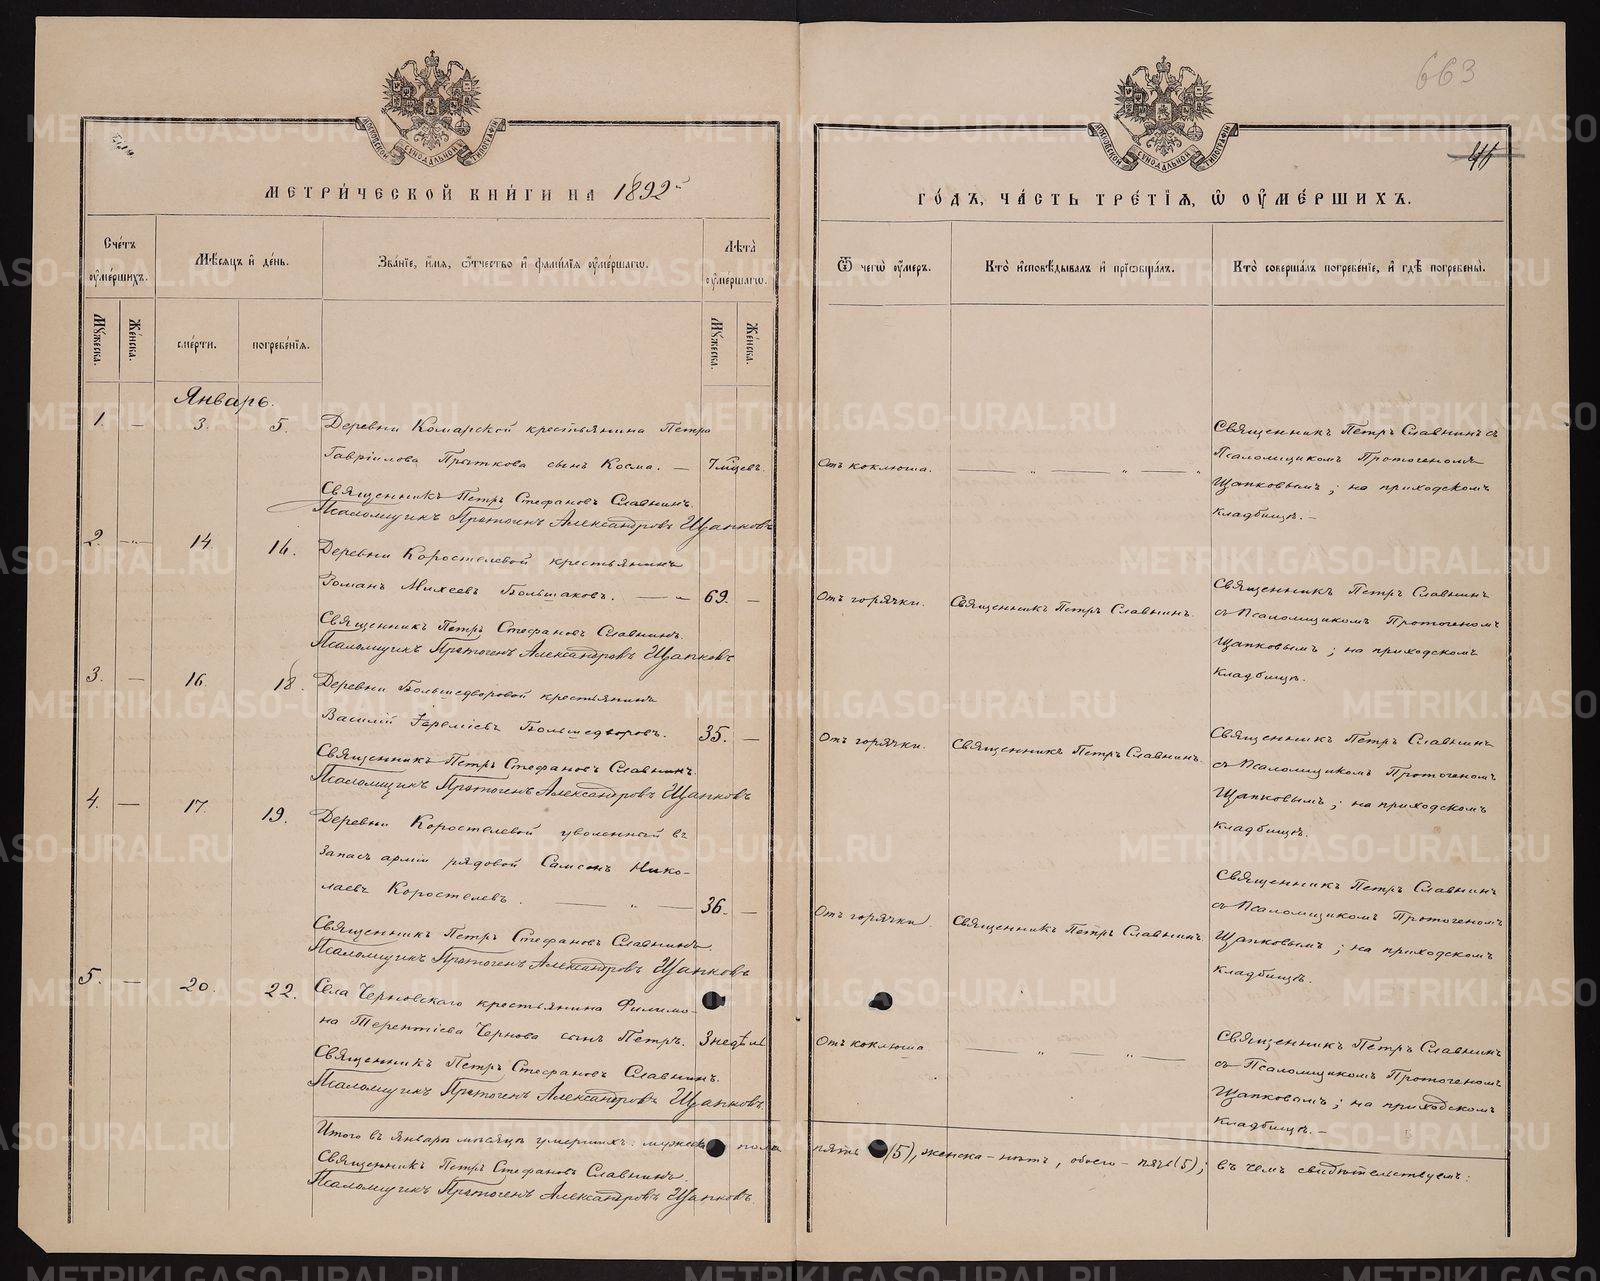 663
МЕТРИ́ЧЕСКОЙ КНИ́ГИ НА 1892й
ГО́ДЪ, ЧА́СТЬ ТРЕ́ТІѦ, Ѿ ОУМЕ́РШИХЪ.
МОСКОВСКОЙ СѴНОДАЛЬНОЙ ТИПОГРАФІИ
МОСКОВСКОЙ СѴНОДАЛЬНОЙ ТИПОГРАФІИ
Сче́тъ оуме́ршихъ.
Мѣ́сяцъ и де́нь.
Зва́ніе, и́мя, о́тчество и фами́лія оуме́ршагѡ.
Лѣ́та оуме́ршагѡ.
Ѿ чегѡ̀ оу́меръ.
Кто̀ исповѣ́дывалъ и пріѡбща́лъ.
Кто̀ соверша́лъ погребе́ніе, и гдѣ̀ погребены̀.
Му́жеска.
Же́нска.
сме́рти.
погребе́нія.
Му́жеска.
Же́нска.
Январь.
1. — 3. 5. Деревни Комарской крестьянина Петра
Гавріилова Прыткова сынъ Косма. — 7 мѣцевъ.
Священникъ Петръ Стефановъ Славнинъ.
Псаломщикъ Протогенъ Александровъ Щапковъ
Отъ коклюша.
Священникъ Петръ Славнинъ съ
Псаломщикомъ Протогеномъ
Щапковымъ; на приходскомъ
кладбищѣ. —
2. — 14. 16. Деревни Коростелевой крестьянинъ
Романъ Михеевъ Большаковъ. — 69. —
Священникъ Петръ Стефановъ Славнинъ.
Псаломщикъ Протогенъ Александровъ Щапковъ
Отъ горячки.
Священникъ Петръ Славнинъ.
Священникъ Петръ Славнинъ
съ Псаломщикомъ Протогеномъ
Щапковымъ; на приходскомъ
кладбищѣ.
3. — 16. 18. Деревни Большедворовой крестьянинъ
Василій Іереміевъ Большедворовъ. 35. —
Священникъ Петръ Стефановъ Славнинъ.
Псаломщикъ Протогенъ Александровъ Щапковъ
Отъ горячки.
Священникъ Петръ Славнинъ.
Священникъ Петръ Славнинъ
съ Псаломщикомъ Протогеномъ
Щапковымъ; на приходскомъ
кладбищѣ.
4. — 17. 19. Деревни Коростелевой уволенный въ
запасъ арміи рядовой Самсонъ Нико-
лаевъ Коростелевъ. — 36. —
Священникъ Петръ Стефановъ Славнинъ.
Псаломщикъ Протогенъ Александровъ Щапковъ
Отъ горячки
Священникъ Петръ Славнинъ.
Священникъ Петръ Славнинъ
съ Псаломщикомъ Протогеномъ
Щапковымъ; на приходскомъ
кладбищѣ.
5. — 20. 22. Села Черновскаго крестьянина Филимо-
на Терентіева Чернова сынъ Петръ. 3 недѣли
Священникъ Петръ Стефановъ Славнинъ.
Псаломщикъ Протогенъ Александровъ Щапковъ.
Отъ коклюша
Священникъ Петръ Славнинъ
съ Псаломщикомъ Протогеномъ
Щапковымъ; на приходскомъ
кладбищѣ. —
Итого въ январѣ мѣсяцѣ умершихъ: мужеска пола
пять (5), женска — нѣтъ, обоего — пять (5); въ чемъ свидѣтельствуемъ:
Священникъ Петръ Стефановъ Славнинъ.
Псаломщикъ Протогенъ Александровъ Щапковъ.
METRIKI.GASO-URAL.RU